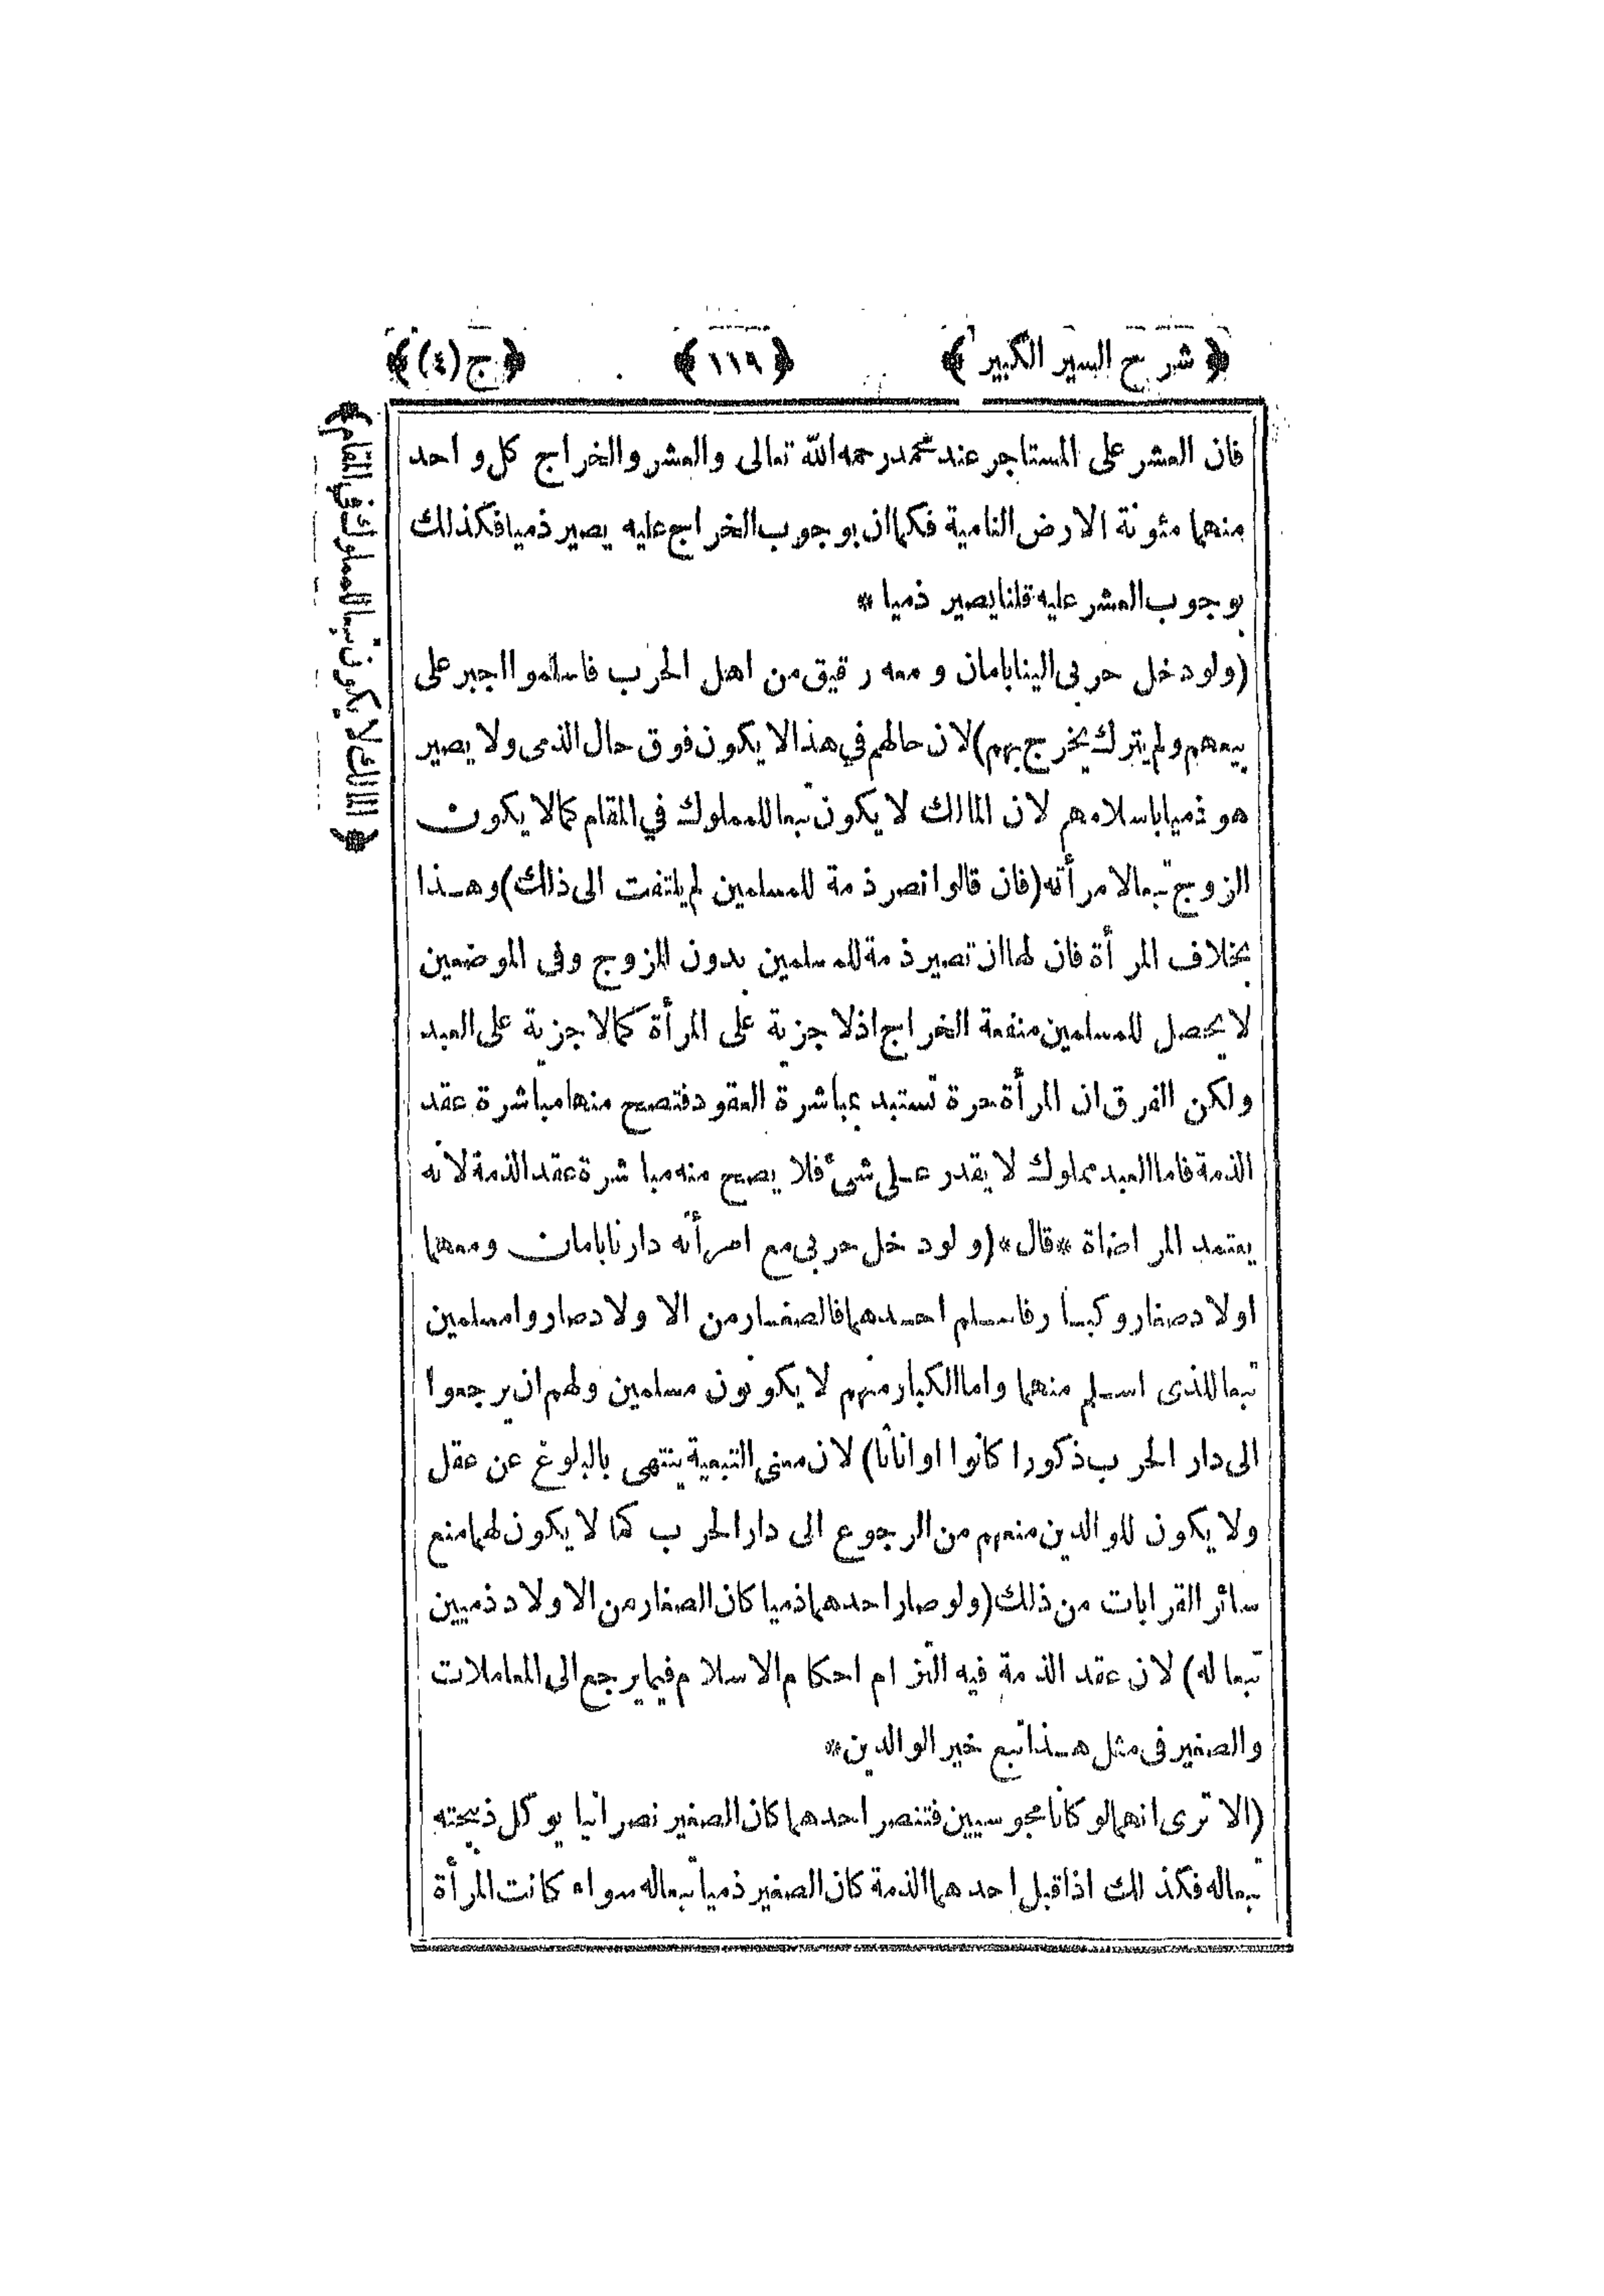 ﴿ شرح السير الكبير ﴾ ﴿ ١١٩ ﴾ ﴿ ج (٤) ﴾
فان العشر على المستاجر عند محمد رحمه الله تعالى والعشر والخراج كل واحد
منهما مئونة الارض النامية فكما ان بوجوب الخراج عليه يصير ذميا فكذلك
بوجوب العشر عليه قلنا يصير ذميا *
(ولو دخل حربى الينا بامان ومعه رقيق من اهل الحرب فاسلموا اجبر على
بيعهم ولم يترك يخرج بهم) لان حالهم في هذا لا يكون فوق حال الذمى ولا يصير
هو ذميا باسلامهم لان المالك لا يكون تبعا للمملوك في المقام كما لا يكون
الزوج تبعا لامرأته (فان قالوا نصر ذمة للمسلمين لم يلتفت الى ذلك) وهذا
بخلاف المرأة فان لها ان تصير ذمة للمسلمين بدون الزوج وفى الموضعين
لا يحصل للمسلمين منفعة الخراج اذ لا جزية على المرأة كما لا جزية على العبد
ولكن الفرق ان المرأة حرة تستبد بمباشرة العقود فتصح منها مباشرة عقد
الذمة فاما العبد مملوك لا يقدر على شئ فلا يصح منه مباشرة عقد الذمة لانه
يعتمد المراضاة * قال * (ولو دخل حربى مع امرأته دارنا بامان ومعهما
اولاد صغار وكبار فاسلم احدهما فالصغار من الاولاد صاروا مسلمين
تبعا للذى اسلم منهما واما الكبار منهم لا يكونون مسلمين ولهم ان يرجعوا
الى دار الحرب ذكورا كانوا او اناثا) لان معنى التبعية ينتهى بالبلوغ عن عقل
ولا يكون للوالدين منعهم من الرجوع الى دار الحرب كما لا يكون لهما منع
سائر القرابات من ذلك (ولو صار احدهما ذميا كان الصغار من الاولاد ذميين
تبعا له) لان عقد الذمة فيه التزام احكام الاسلام فيما يرجع الى المعاملات
والصغير فى مثل هذا تبع خير الوالدين *
(الا ترى انهما لو كانا مجوسيين فتنصر احدهما كان الصغير نصرانيا يوكل ذبيحته
تبعا له فكذلك اذا قبل احدهما الذمة كان الصغير ذميا تبعا له سواء كانت المرأة
﴿ المالك لا يكون تبعا للمملوك في المقام ﴾